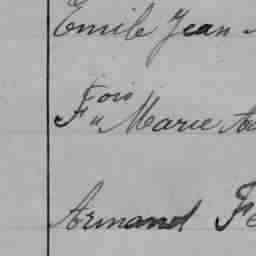 Emile Jean
Fois Marie
Armand